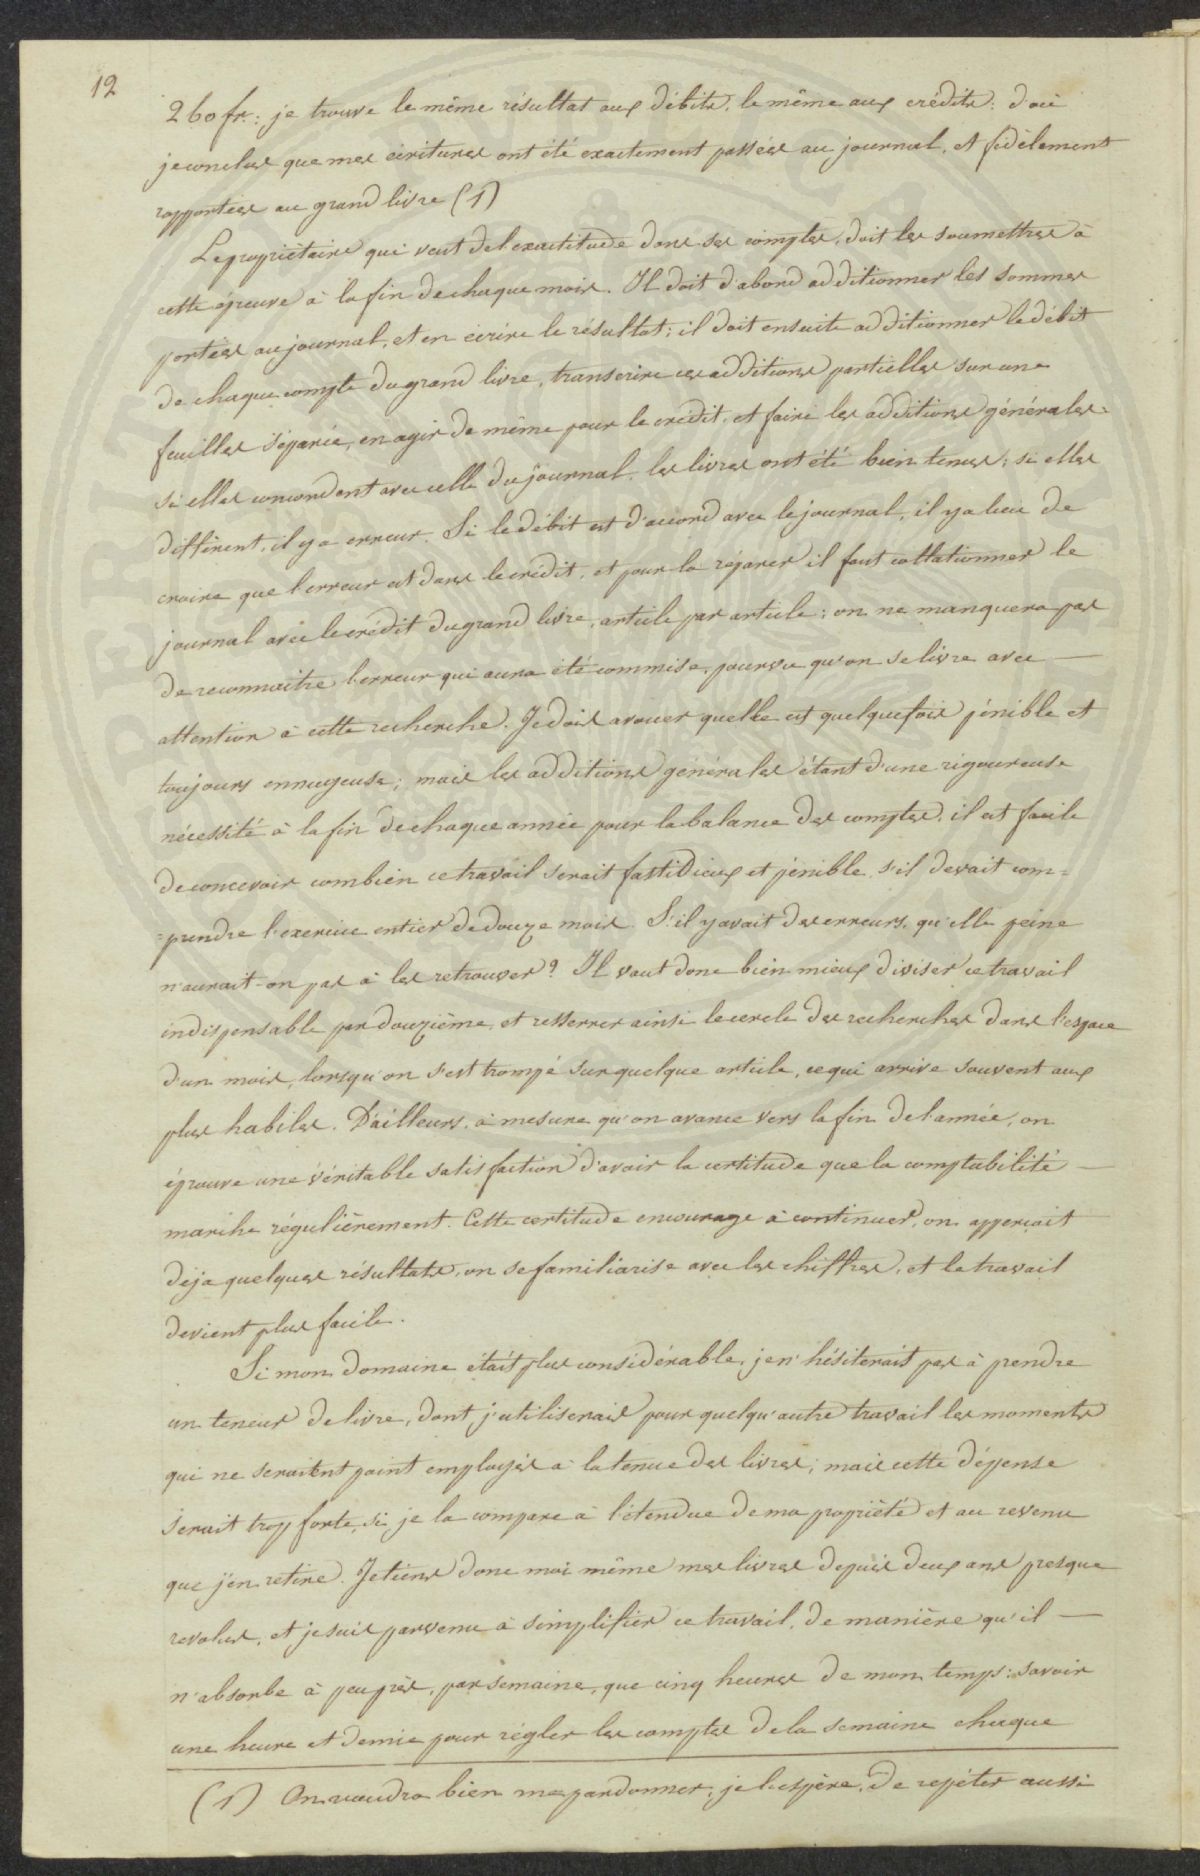 12
260 fr.: je trouve le même résultat aux débits, le même aux crédits: d'où
je conclus que mes écritures ont été exactement passées au journal, et fidèlement
rapportées au grand livre (1)
Le propriétaire qui veut de l'exactitude dans ses comptes, doit les soumettre à
cette épreuve à la fin de chaque mois. Il doit d'abord additionner les sommes
portées au journal, et en écrire le résultat; il doit ensuite additionner le débit
de chaque compte du grand livre, transcrire ces additions partielles sur une
feuille séparée, en agir de même pour le crédit, et faire les additions générales:
si elles concordent avec celle du journal, les livres ont été bien tenus; si elles
diffèrent, il y a erreur. Si le débit est d'accord avec le journal, il y a lieu de
croire que l'erreur est dans le crédit, et pour la réparer il faut collationner le
journal avec le crédit du grand livre, article par article; on ne manquera pas
de reconnaitre l'erreur qui aura été commise, pourvu qu'on se livre avec —
attention à cette recherche. Je dois avouer quelle est quelquefois pénible et
toujours ennuyeuse; mais les additions générales étant d'une rigoureuse
nécessité à la fin de chaque année pour la balance des comptes, il est facile
de concevoir combien ce travail serait fastidieux et pénible, s'il devait com=
=prendre l'exercice entier de douze mois. S'il y avait des erreurs, qu'elle peine
n'aurait-on pas à les retrouver? Il vaut donc bien mieux diviser ce travail
indispensable par douzième, et resserrer ainsi le cercle des recherches dans l'espace
d'un mois, lorsqu'on s'est trompé sur quelque article, ce qui arrive souvent aux
plus habiles. D'ailleurs, à mesure qu'on avance vers la fin de l'année, on
éprouve une véritable satisfaction d'avoir la certitude que la comptabilité —
marche régulièrement. Cette certitude encourage à continuer, on apperçoit
déja quelques résultats, on se familiarise avec les chiffres, et le travail
devient plus facile.
Si mon domaine était plus considérable, je n'hésiterait pas à prendre
un teneur de livre, dont j'utiliserais pour quelqu'autre travail les moments
qui ne seraient point employés à la tenue des livres; mais cette dépense
serait trop forte, si je la compare à l'étendue de ma propriété et au revenu
que j'en retire. Je tiens donc moi même mes livres depuis deux ans presque
revolus, et je suis parvenu à simplifier ce travail, de manière qu'il —
n'absorbe à peu près, par semaine, que cinq heures de mon temps: savoir
une heure et demie pour régler les comptes de la semaine chaque
(1) On voudra bien me pardonner, je l'espère, de repéter aussi